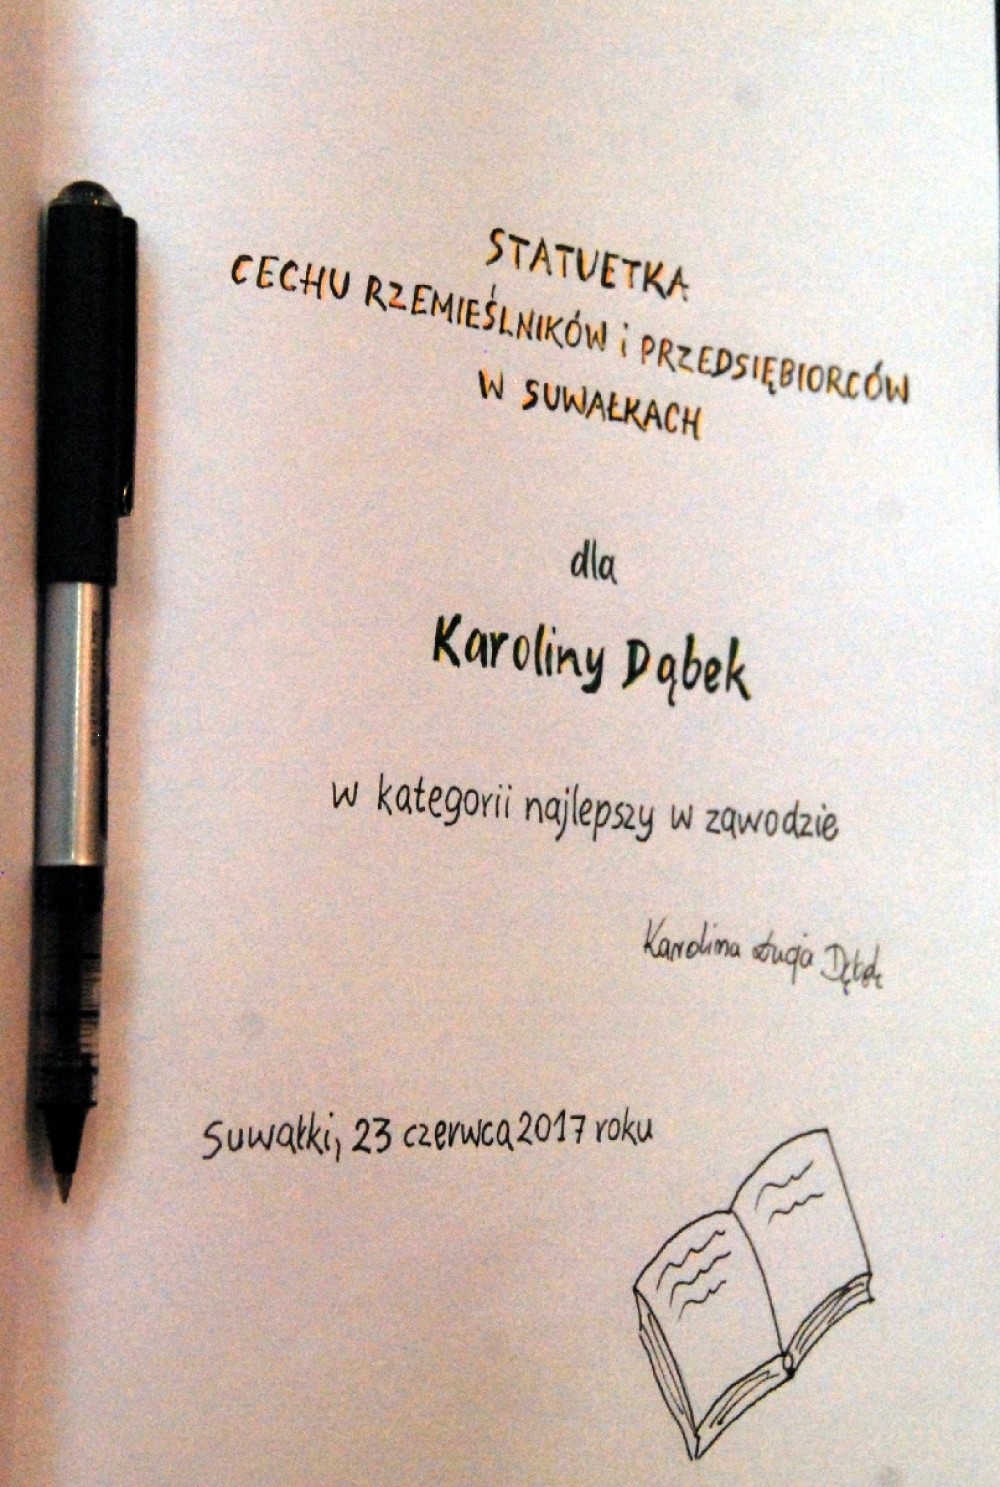 STATUETKA
CECHU RZEMIEŚLNIKÓW i PRZEDSIĘBIORCÓW
W SUWAŁKACH
dla
Karoliny Dąbek
w kategorii najlepszy w zawodzie
Karolina
Suwałki, 23 czerwca 2017 roku